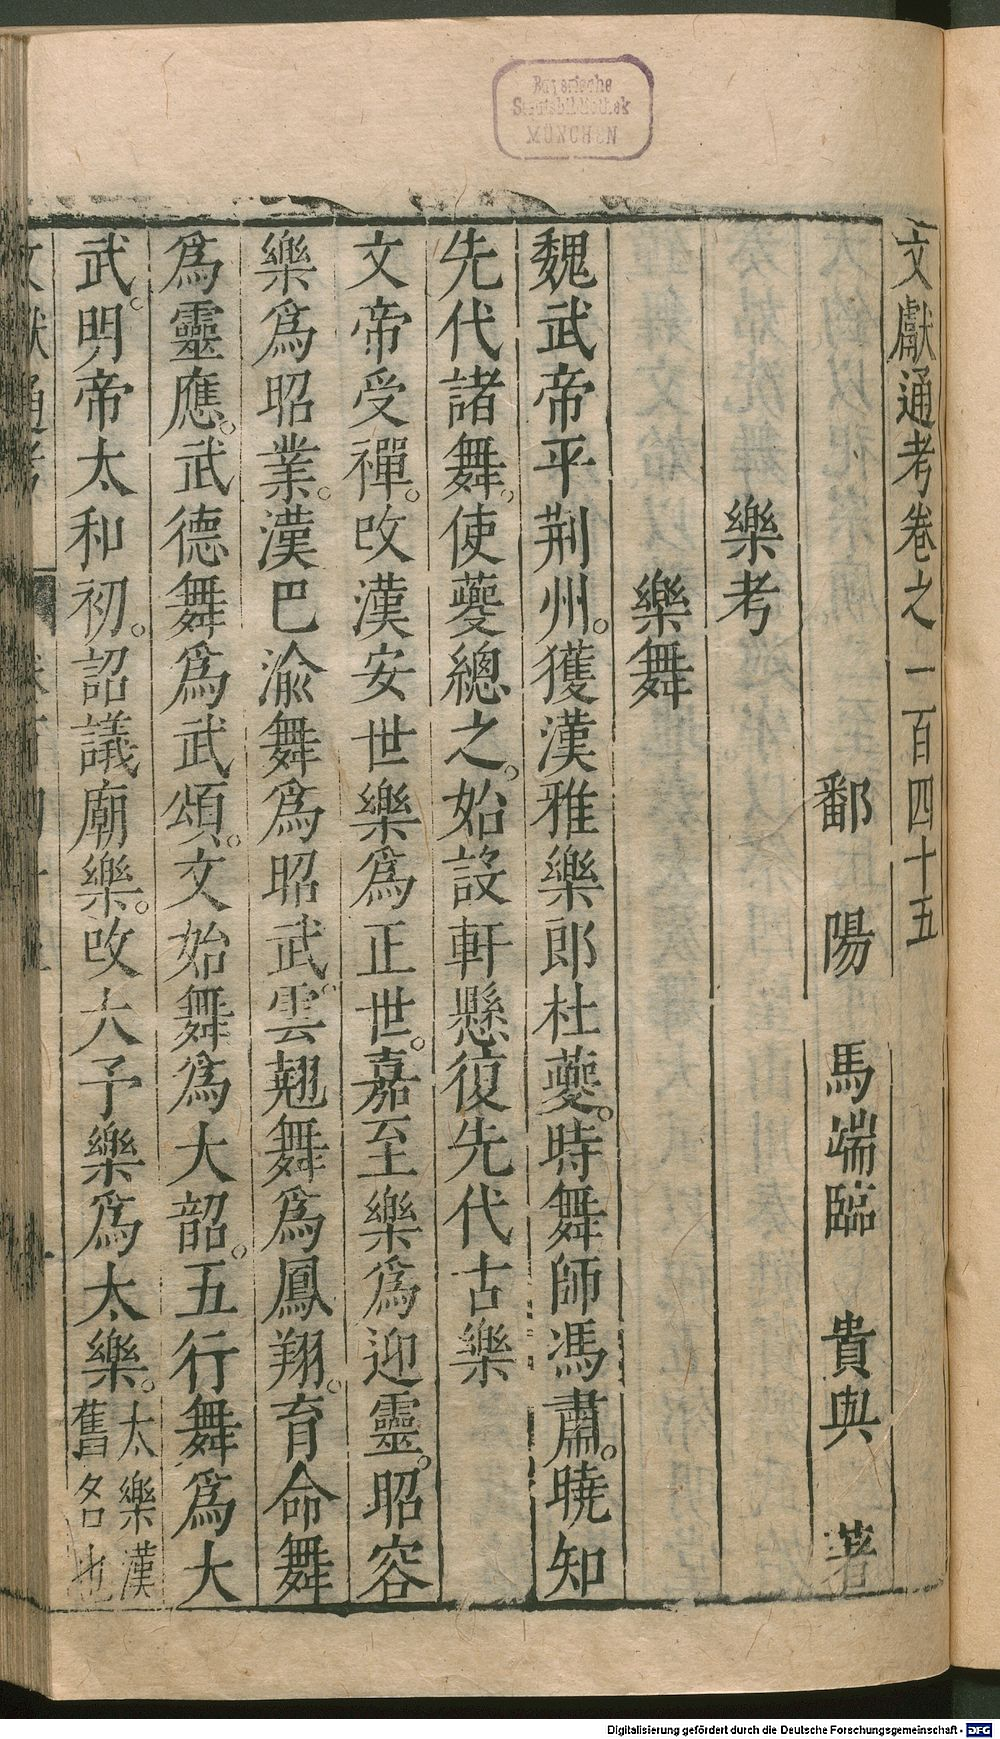 文獻通考卷之一百四十五
鄱陽馬端臨貴與著
樂考
樂舞
魏武帝平荆州。獲漢雅樂郎杜夔。時舞師馮肅。曉知
先代諸舞。使夔總之。始設軒懸復先代古樂
文帝受禪。改漢安世樂爲正世。嘉至樂爲迎靈。昭容
樂爲昭業。漢巴渝舞爲昭武。雲翹舞爲鳳翔。育命舞
爲靈應。武德舞爲武頌。文始舞爲大韶。五行舞爲大
武。明帝太和初。詔議廟樂。改大予樂爲太樂。太樂漢舊名也
文獻通考
Bayerische
Staatsbibliothek
MÜNCHEN
Digitalisierung gefördert durch die Deutsche Forschungsgemeinschaft - DFG